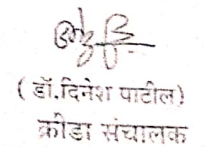 ( डॉ.दिनेश पाटील)
क्रीडा संचालक